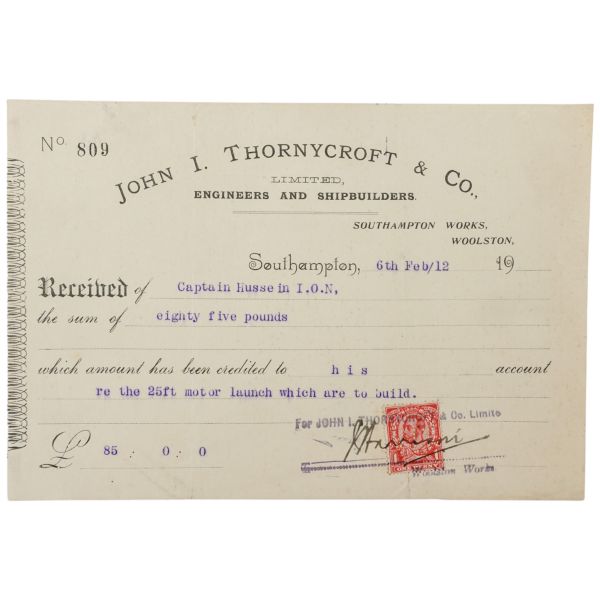 No. 809
JOHN I. THORNYCROFT & CO.,
LIMITED,
ENGINEERS AND SHIPBUILDERS.
SOUTHAMPTON WORKS,
WOOLSTON,
Southampton, 6th Feb/12 19
Received of Captain Hussein I.O.N,
the sum of eighty five pounds
which amount has been credited to his account
re the 25ft motor launch which are to build.
For JOHN I. THORNYCROFT & Co. Limite
£ 85 : 0 : 0
Woolston Works